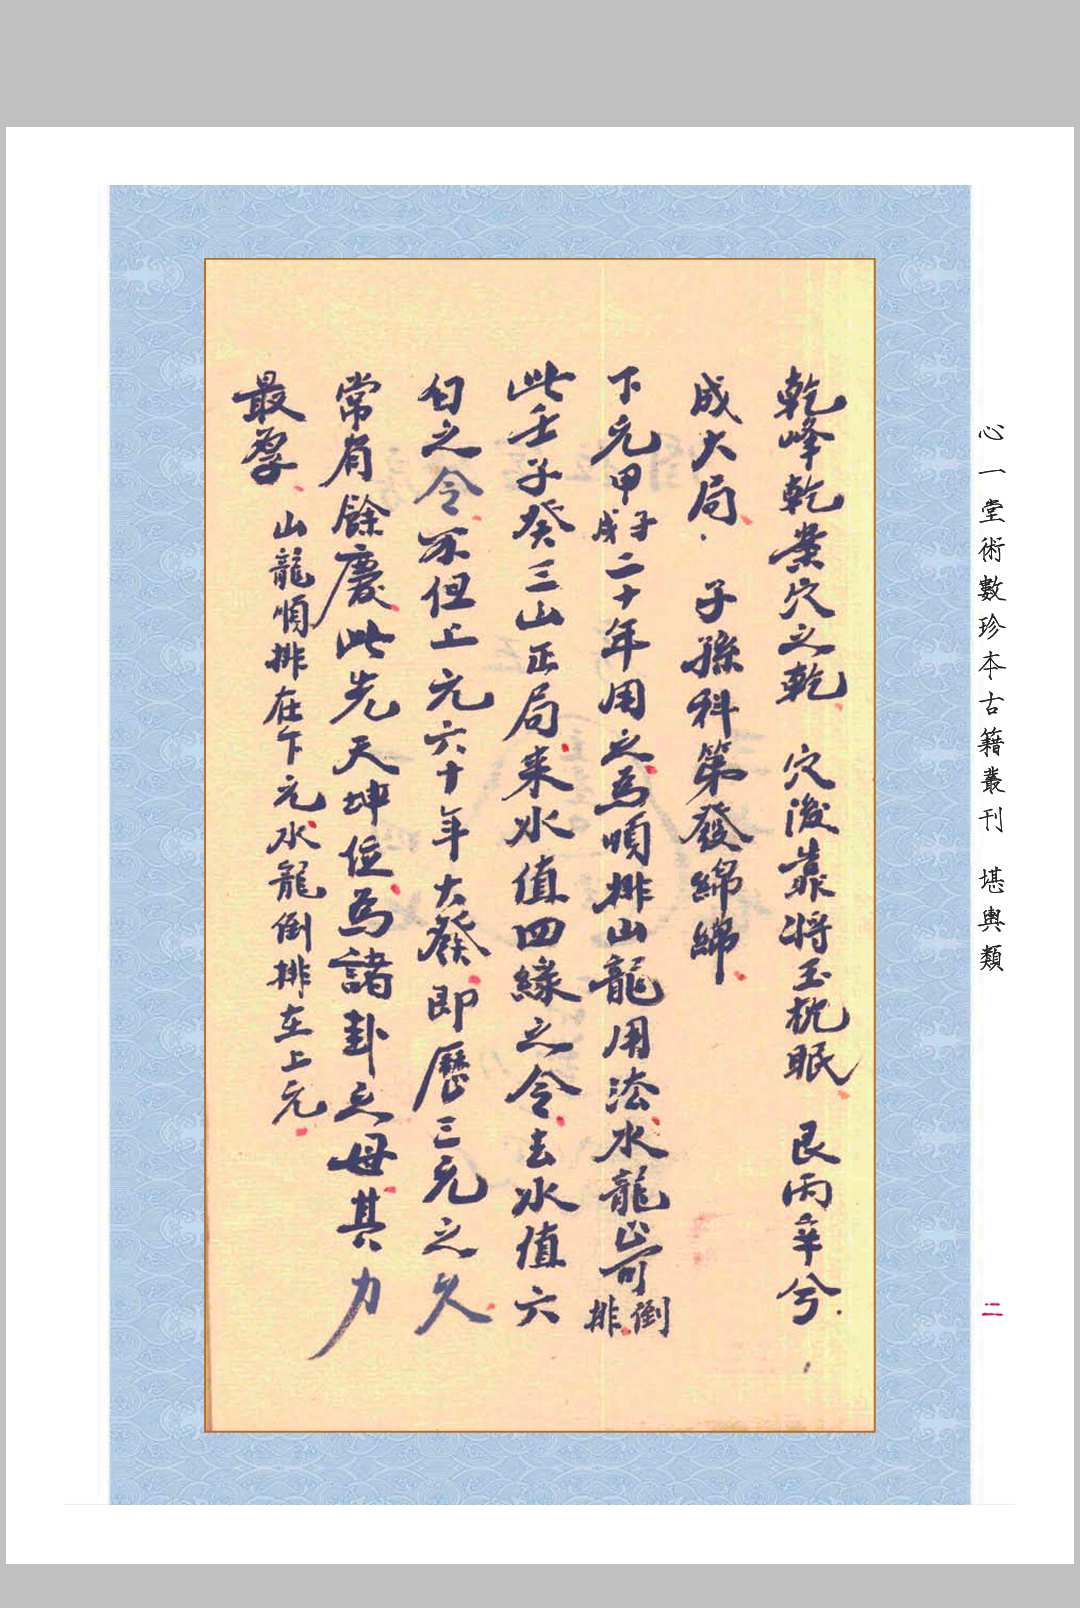 心一堂術數珍本古籍叢刊 堪輿類
二
乾峰乾案穴之乾 穴後靠將玉枕眠 艮丙辛兮
成大局 子孫科第發綿綿
下元甲子戌二十年用之為順排山龍用法水龍 倒排
此壬子癸三山正局来水值四緣之令去水值六
白之令不但上元六十年大發即歷三元之久
常有餘慶此先天坤位為諸卦之母其力
最厚 山龍順排在下元水龍倒排在上元